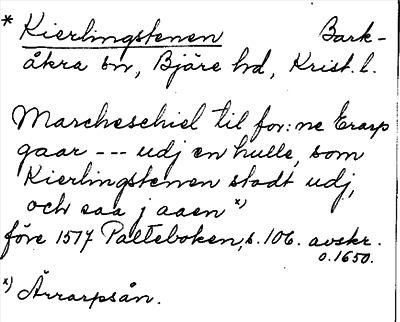 * Kierlingstenen Bark-
åkra sn, Bjäre hd, Krist. l.
Marcheschiel til for: ne Erarp
gaar --- udj en hulle, som
Kierlingstenen stodt udj,
och saa j aaen x)
före 1517 Palteboken, s. 106. avskr.
o. 1650.
x) Ärrarpsån.